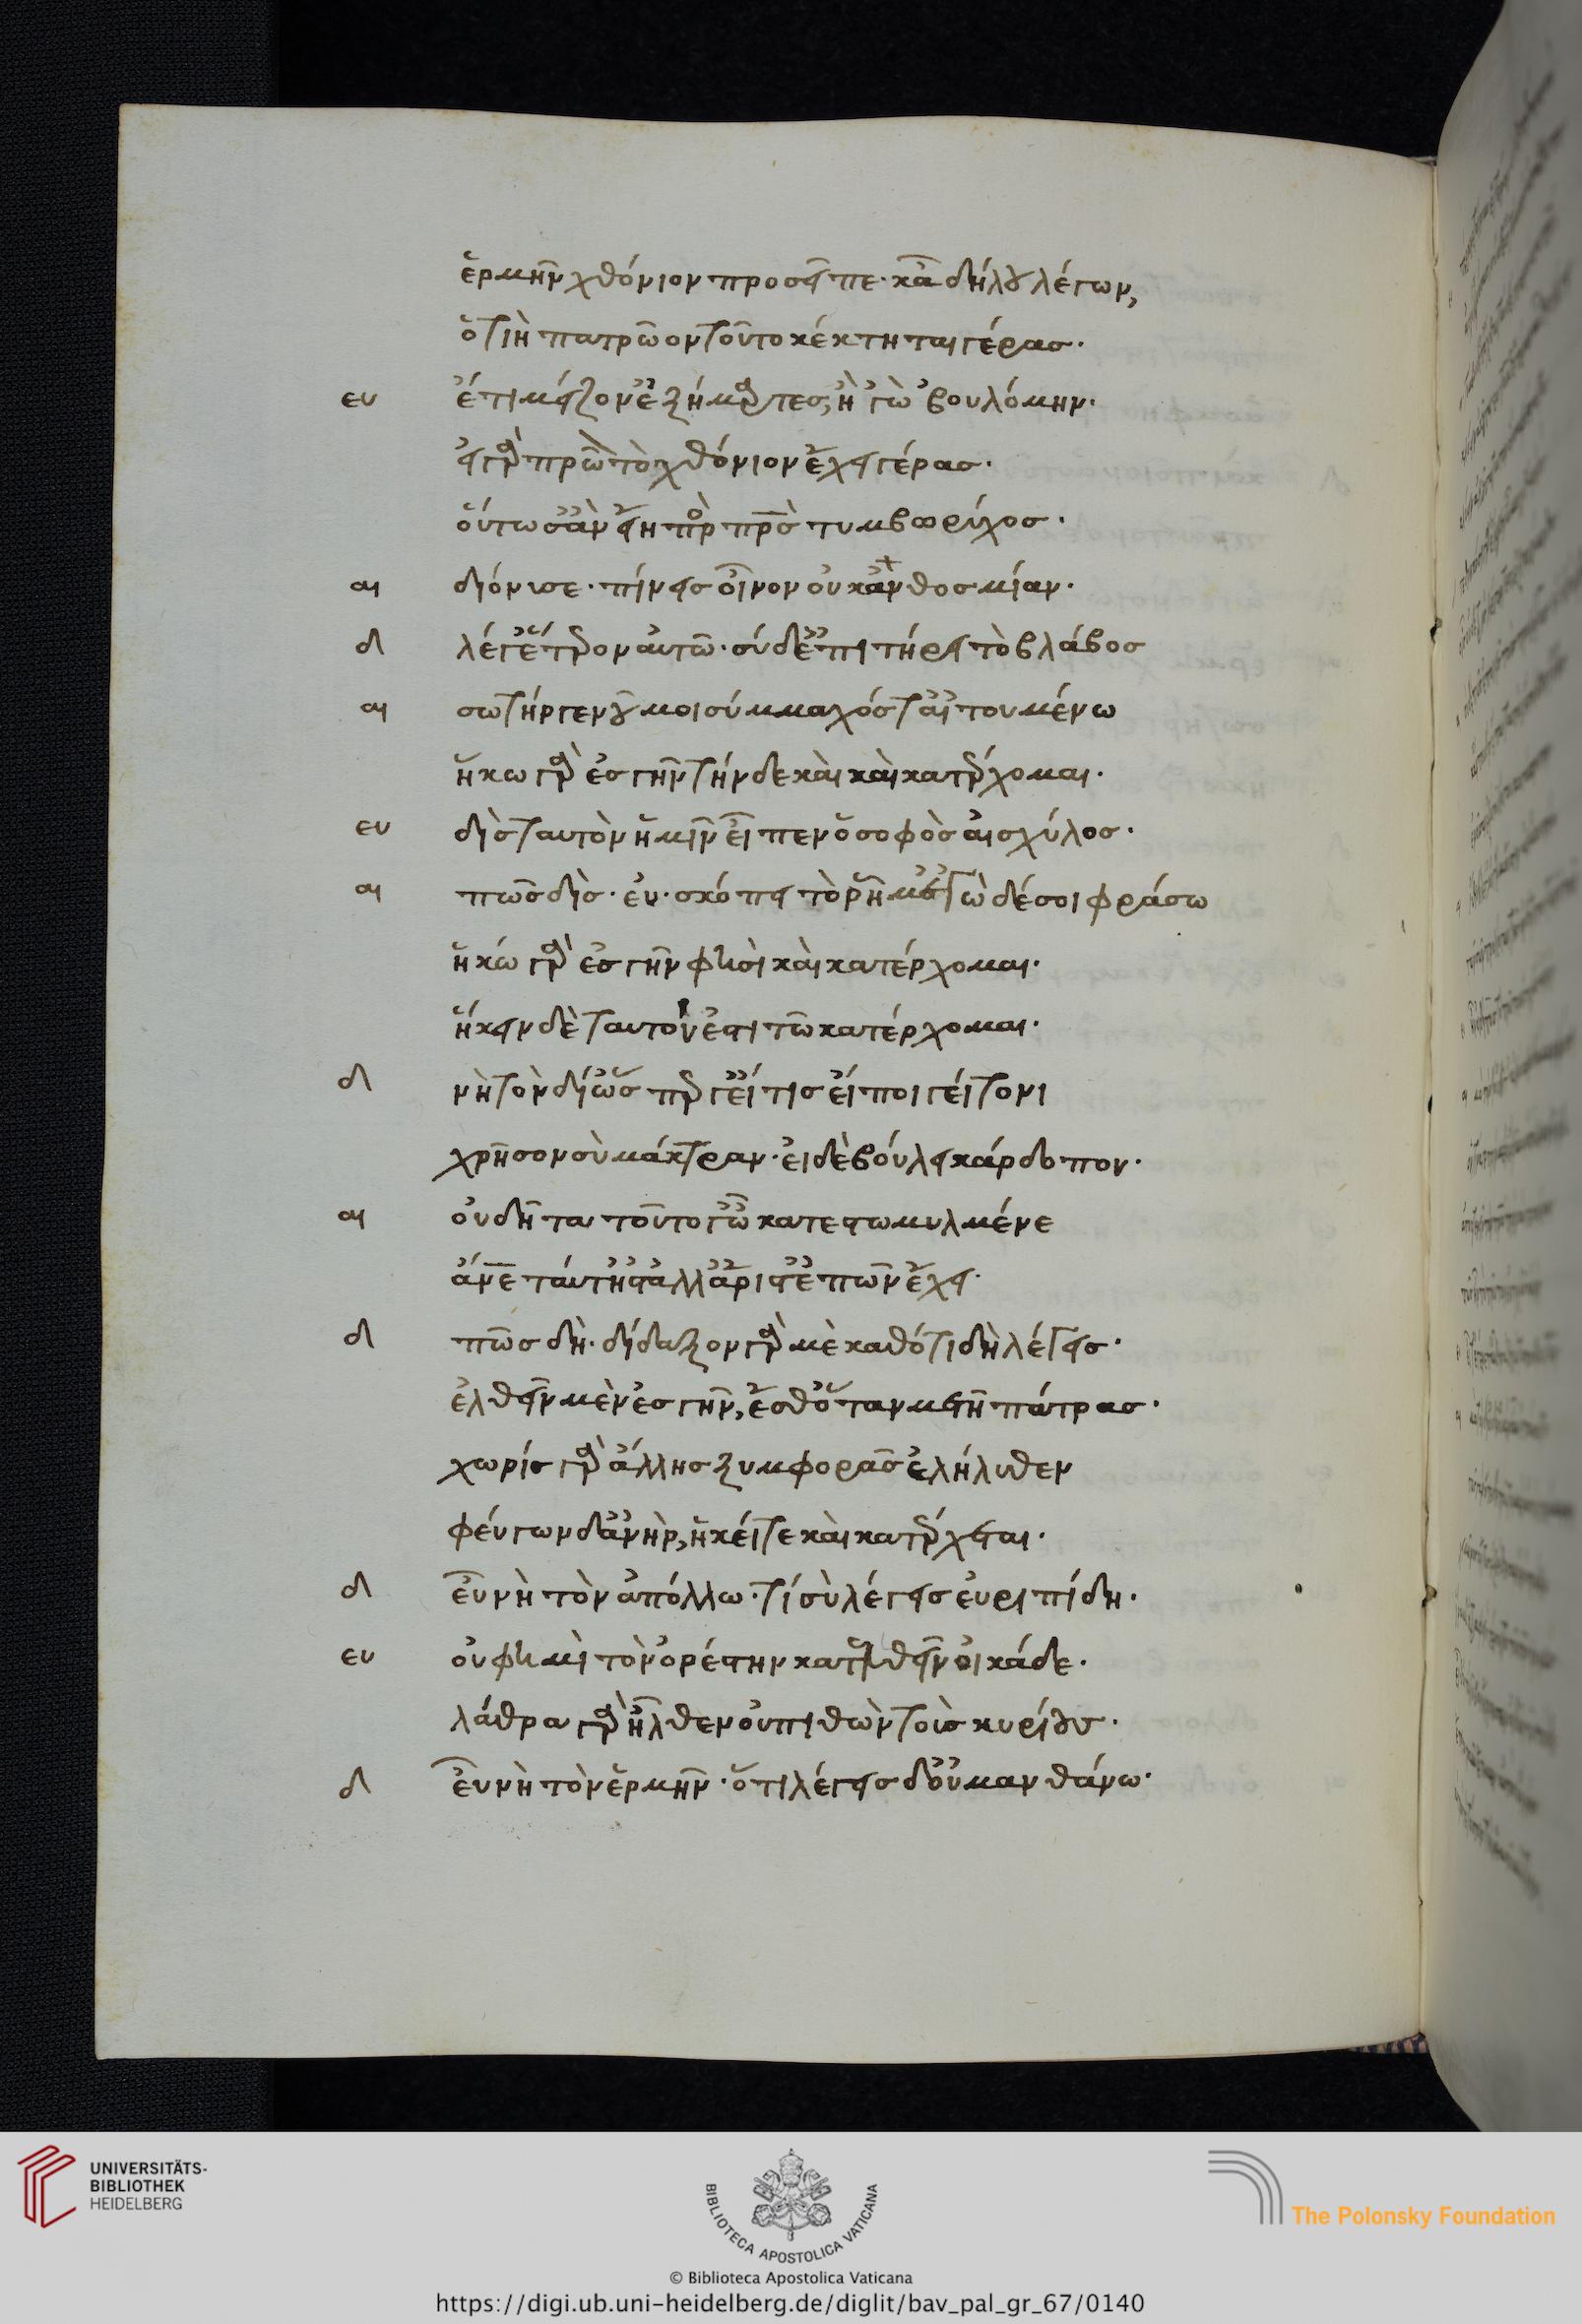 ἑρμῆν χθόνιον προσεῖπε· κἀδήλου λέγων,
ὁτιὴ πατρῶον τοῦτο κέκτηται γέρας·
ευ ἔτι μεῖζον ἐξήμαρτες, ἢ ᾽γὼ ᾽βουλόμην·
εἰ γὰρ πατρῶιον τὸ χθόνιον ἔχει γέρας·
οὕτως ἂν εἴη πρὸς πατρὸς τυμβωρύχος·
αι διόνισε· πίνεις οἶνον οὐκ ἀνθοσμίαν·
δι λέγ᾽ ἕτερον αὐτῶ· σὺ δ᾽ ἐπιτήρει τὸ βλάβος
αι σωτὴρ γενοῦ μοι σύμμαχός τ᾽ αἰτουμένω
ἥκω γὰρ ἐς γῆν τήνδε καὶ καὶ κατέρχομαι·
ευ δὶς ταυτὸν ἡμῖν εἶπεν ὁ σοφὸς αἰσχύλος·
αι πῶς δίς· ευ· σκόπει τὸ ῥῆμ᾽· ἐγὼ δέ σοι φράσω
ἥκω γὰρ ἐς γῆν φησὶ καὶ κατέρχομαι·
ἥκειν δὲ ταυτόν ἐστι τῶ κατέρχομαι·
δι νὴ τὸν δί᾽ ὥσπερ γ᾽ εἴ τις εἴποι γείτονι
χρῆσον σὺ μάκτραν· εἰ δὲ βούλει κάρδοπον·
αι οὐ δῆτα τοῦτό γ᾽ ὦ κατεστωμυλμένε
ἄνθρωπε ταύτ᾽ ἦστ᾽ ἀλλ᾽ ἄριστ᾽ ἐπῶν ἔχει·
δι πῶς δή· δίδαξον γάρ με καθότι δὴ λέγεις·
ἐλθεῖν μὲν ἐς γῆν, ἔσθ᾽ ὅταν μετῆ πάτρας·
χωρὶς γὰρ ἄλλης ξυμφορᾶς ἐλήλυθεν
φεύγων δ᾽ ἀνὴρ, ἥκει τε καὶ κατέρχεται·
δι εὖ νὴ τὸν ἀπόλλω· τί σὺ λέγεις εὐριπίδη·
ευ οὐ φημὶ τὸν ὀρέστην κατελθεῖν οἴκαδε·
λάθρα γὰρ ἦλθεν οὐ πιθὼν τοὺς κυρίους·
δι εὖ νὴ τὸν ἑρμῆν· ὅτι λέγεις δ᾽ οὐ μανθάνω·
UNIVERSITÄTS-
BIBLIOTHEK
HEIDELBERG
BIBLIOTECA APOSTOLICA VATICANA
The Polonsky Foundation
© Biblioteca Apostolica Vaticana
https://digi.ub.uni-heidelberg.de/diglit/bav_pal_gr_67/0140